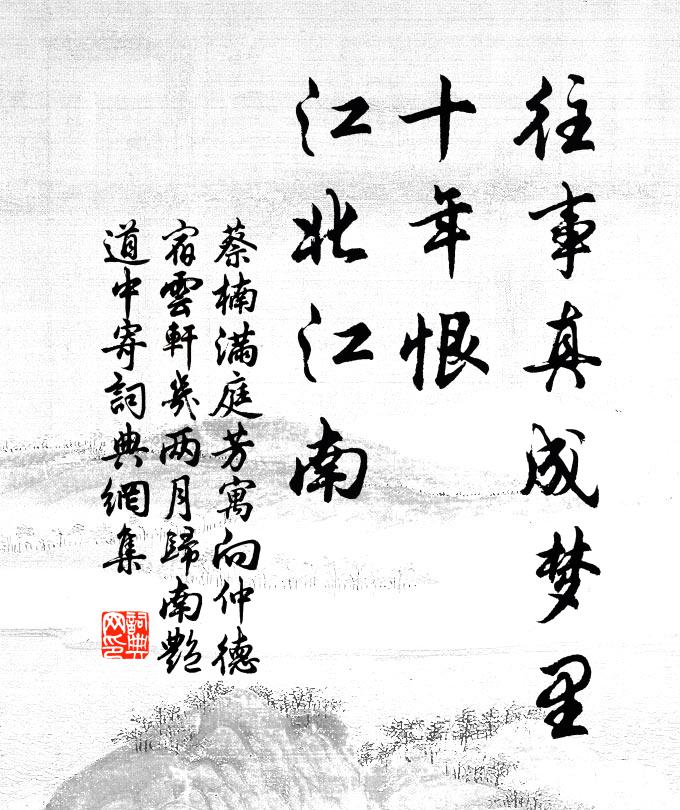 往事真成梦里
十年恨
江北江南
蔡楠满庭芳寓向仲德
宿雲軒幾两月歸南艷
道中寄詞典網集
詞典网印